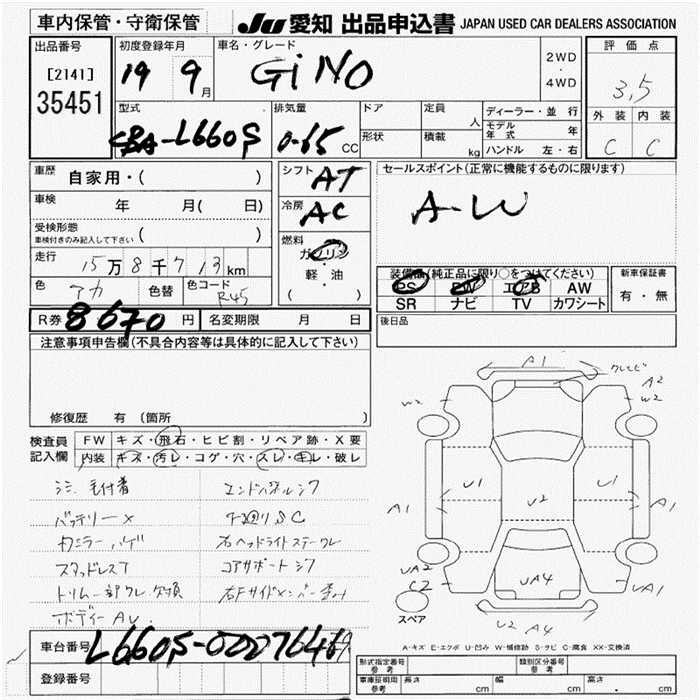 車内保管・守衛保管
JU 愛知 出品申込書 JAPAN USED CAR DEALERS ASSOCIATION
出品番号
[2141]
35451
初度登録年月
19 9月
車名・グレード
GiNO
2WD
・
4WD
評価点
3.5
外装 内装
C C
型式
CBA-L660S
排気量
0.65 CC
ドア
形状
定員 人
積載 kg
ディーラー・並行
モデル年式 年
ハンドル 左・右
車歴
自家用・( )
車検 年 月( 日)
受検形態
車検付きのみ記入して下さい ( )
走行 15万8千713km
色 アカ 色替 色コード R45
シフト AT
冷房 AC
燃料
ガソリン
軽・油
( )
セールスポイント(正常に機能するものに限ります)
A-W
装備品(純正品に限り○をつけてください)
PS PW エアB AW
SR ナビ TV カワシート
新車保証書
有・無
R券 8670円 名変期限 月 日
後日品
注意事項申告欄(不具合内容等は具体的に記入して下さい)
修復歴 有 (箇所 )
検査員記入欄
FW キズ・飛石・ヒビ割・リペア跡・X要
内装 キズ・汚レ・コゲ・穴・スレ・キレ・破レ
シミ 毛付着
バッテリー×
スタッドレスT
ボディー AU.
コアサポートシワ
A1
A2
W2
W2
A1
U1
U2
U1
A1
UA2
C2
UA4
UA1
U2 A4
スペア
A-キズ E-エクボ U-凹み W-補修跡 S-サビ C-腐食 XX-交換済
車台番号 L660S-0007646
登録番号
型式指定番号
参考
類別区分番号
参考
車庫証明用
参考
長さ cm 幅 cm 高さ cm